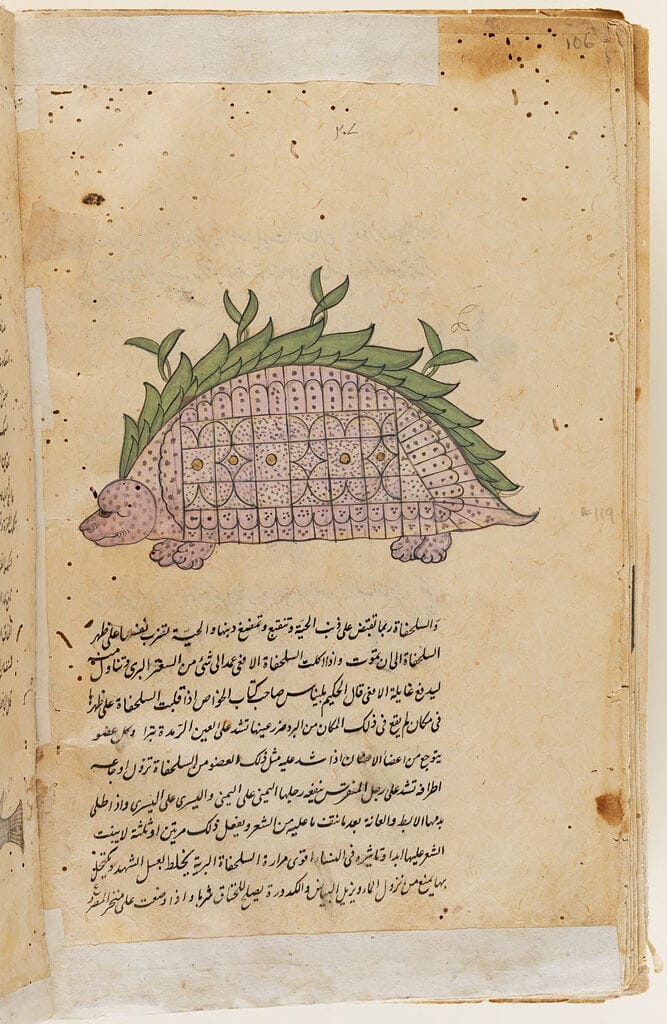 106
٢٠٧
والسلحفاة ربما تقبض على ذنب الحية وتمضغ ذنبها والحية تضرب نفسها على ظهر
السلحفاة الى ان يموت واذا اكلت السلحفاة الافعى عمد الى شئ من السعتر البرى وتناول منه
ليدفع غايلة الافعى قال الحكيم بليناس صاحب كتاب الخواص اذا قلبت السلحفاة على ظهرها
فى مكان لم يقع فى ذلك المكان من البرد ضرر عيناها تشد على العين الرمدة تبرا وكل عضو
يتوجع من اعضا الانسان اذا شد عليه مثل ذلك العضو من السلحفاة تزول اوجاعه
اطرافه تشد على رجل المنقرس ينفعه رجلها اليمنى على اليمنى واليسرى على اليسرى واذا طلى
بدمها الابط والعانة بعد ما نتفت ما عليه من الشعر ويفعل ذلك مرتين او ثلثة لا ينبت
الشعر عليها ابدا وتاثيره فى النساء اقوى مرارة السلحفاة البرية يخلط بعسل الشهد ويكتحل
بها يمنع من نزول الماء ويزيل البياض والكدورة يصلح للخناق شربا واذا وضعت على منخر المصروع
119